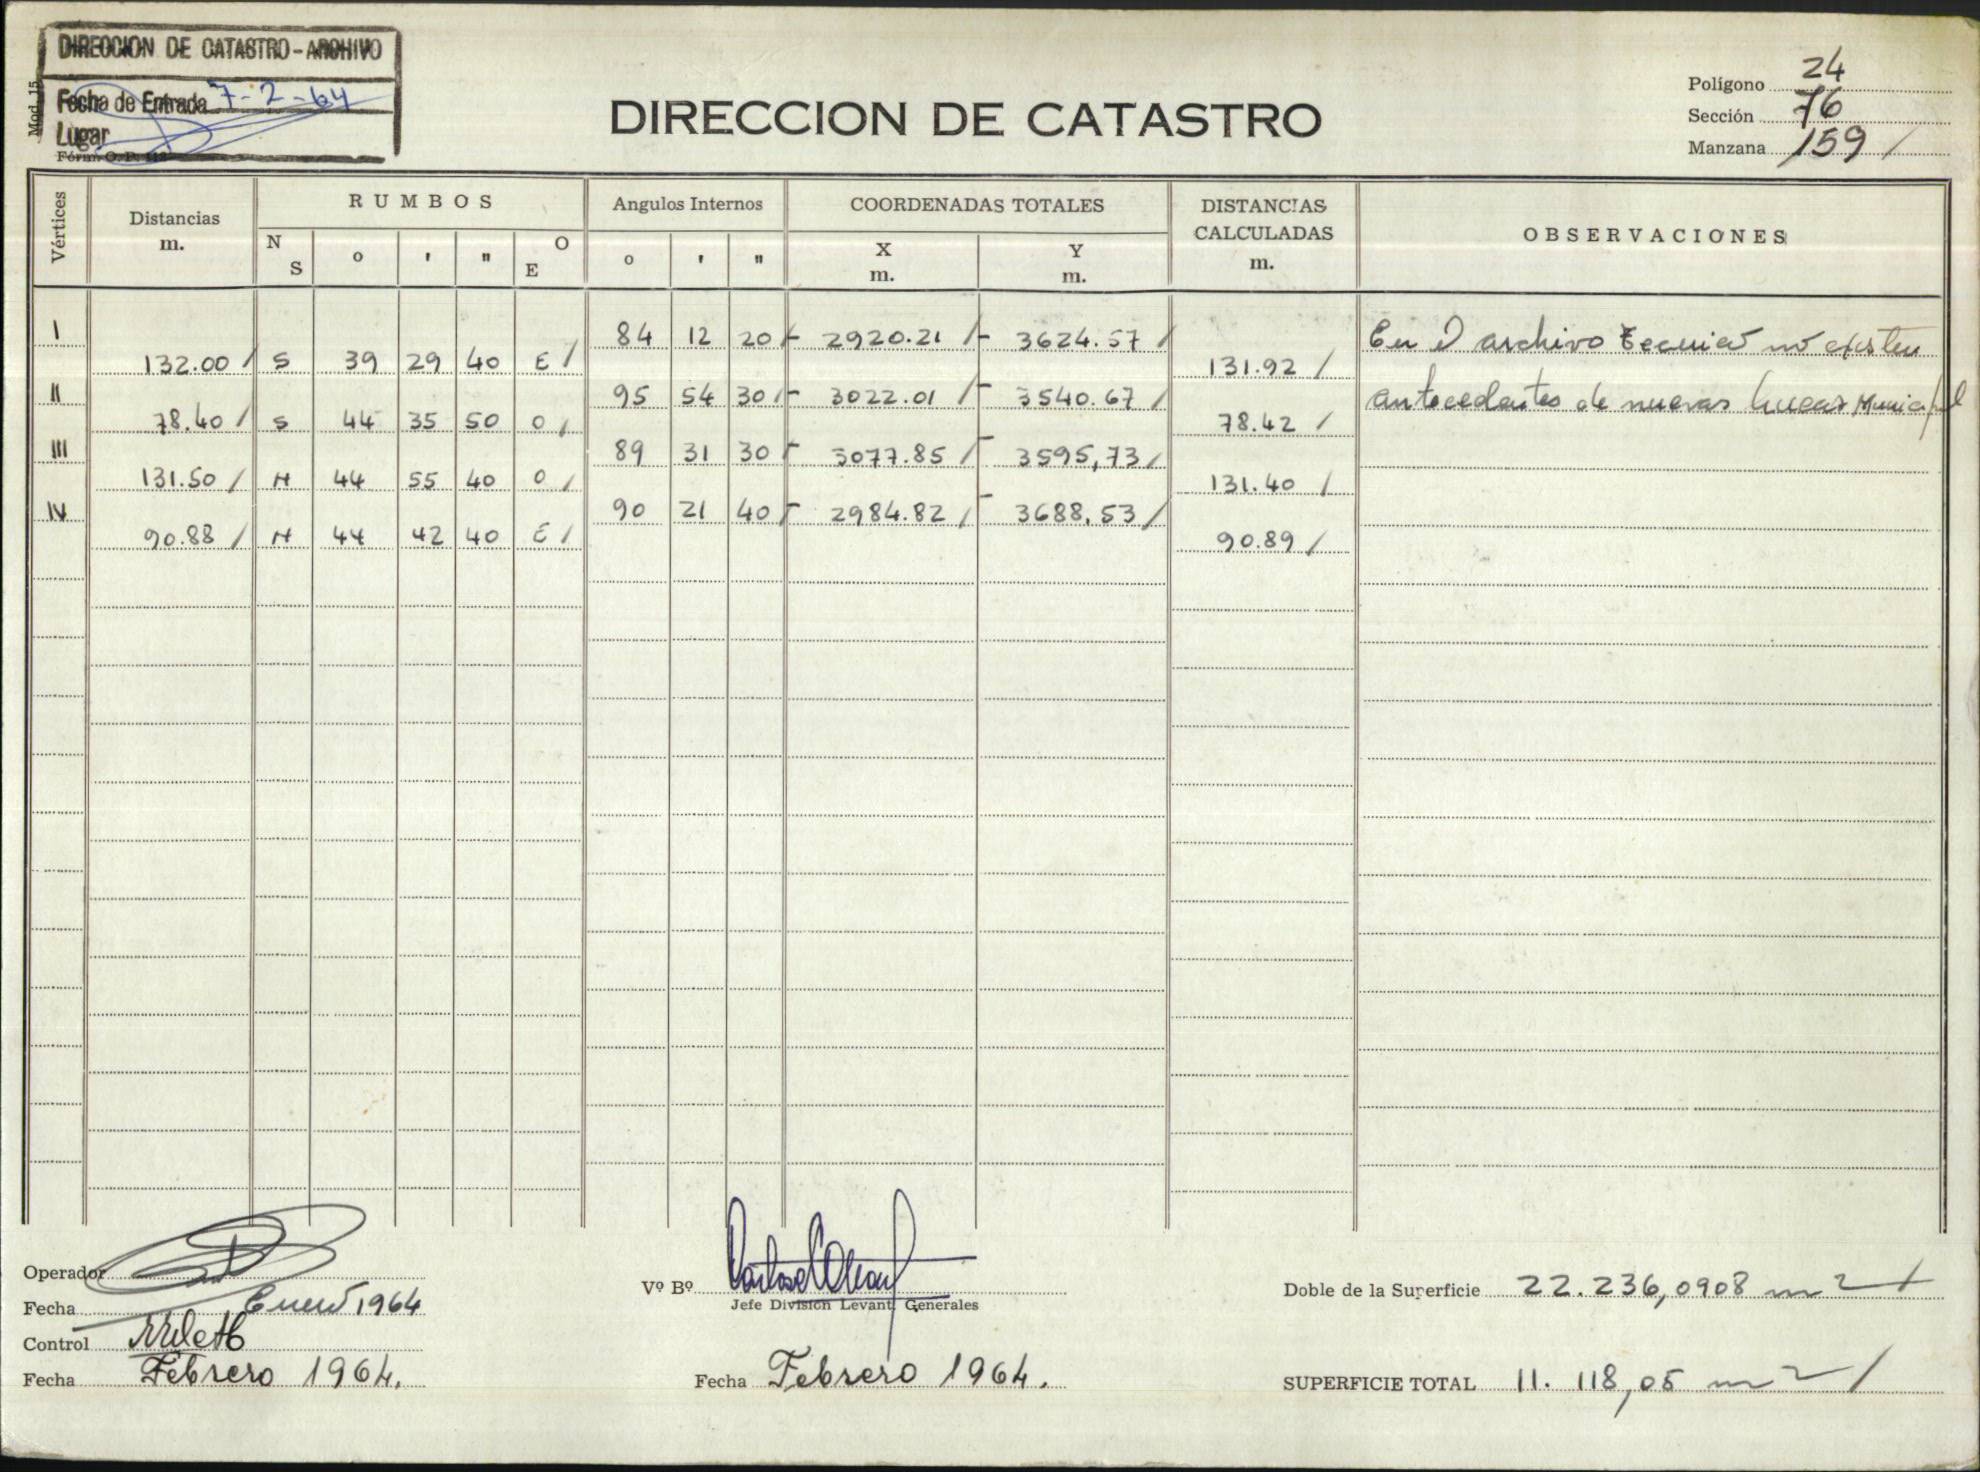 DIRECCION DE CATASTRO - ARCHIVO
Fecha de Entrada 7-2-64
Lugar
Mod. 15
Fórm. O. P. 112
DIRECCION DE CATASTRO
Polígono 24
Sección 76
Manzana 159 /
Vértices
Distancias
m.
RUMBOS
N S
o ' "
O E
Angulos Internos
o ' "
COORDENADAS TOTALES
X
m.
Y
m.
DISTANCIAS
CALCULADAS
m.
OBSERVACIONES
I 84 12 20 - 2920.21 / - 3624.57 / En el archivo tecnico no existen
132.00 / S 39 29 40 E / 131.92 /
II 95 54 30 - 3022.01 / - 3540.67 / antecedentes de nuevas lineas Municipal
78.40 / S 44 35 50 O / 78.42 /
III 89 31 30 - 3077.85 / - 3595,73 /
131.50 / N 44 55 40 O / 131.40 /
IV 90 21 40 - 2984.82 / - 3688,53 /
90.88 / N 44 42 40 E / 90.89 /
Operador
Fecha Enero 1964
Control
Fecha Febrero 1964.
Vº Bº
Jefe División Levant. Generales
Fecha Febrero 1964.
Doble de la Superficie 22.236,0908 m2 /
SUPERFICIE TOTAL 11.118,05 m2 /